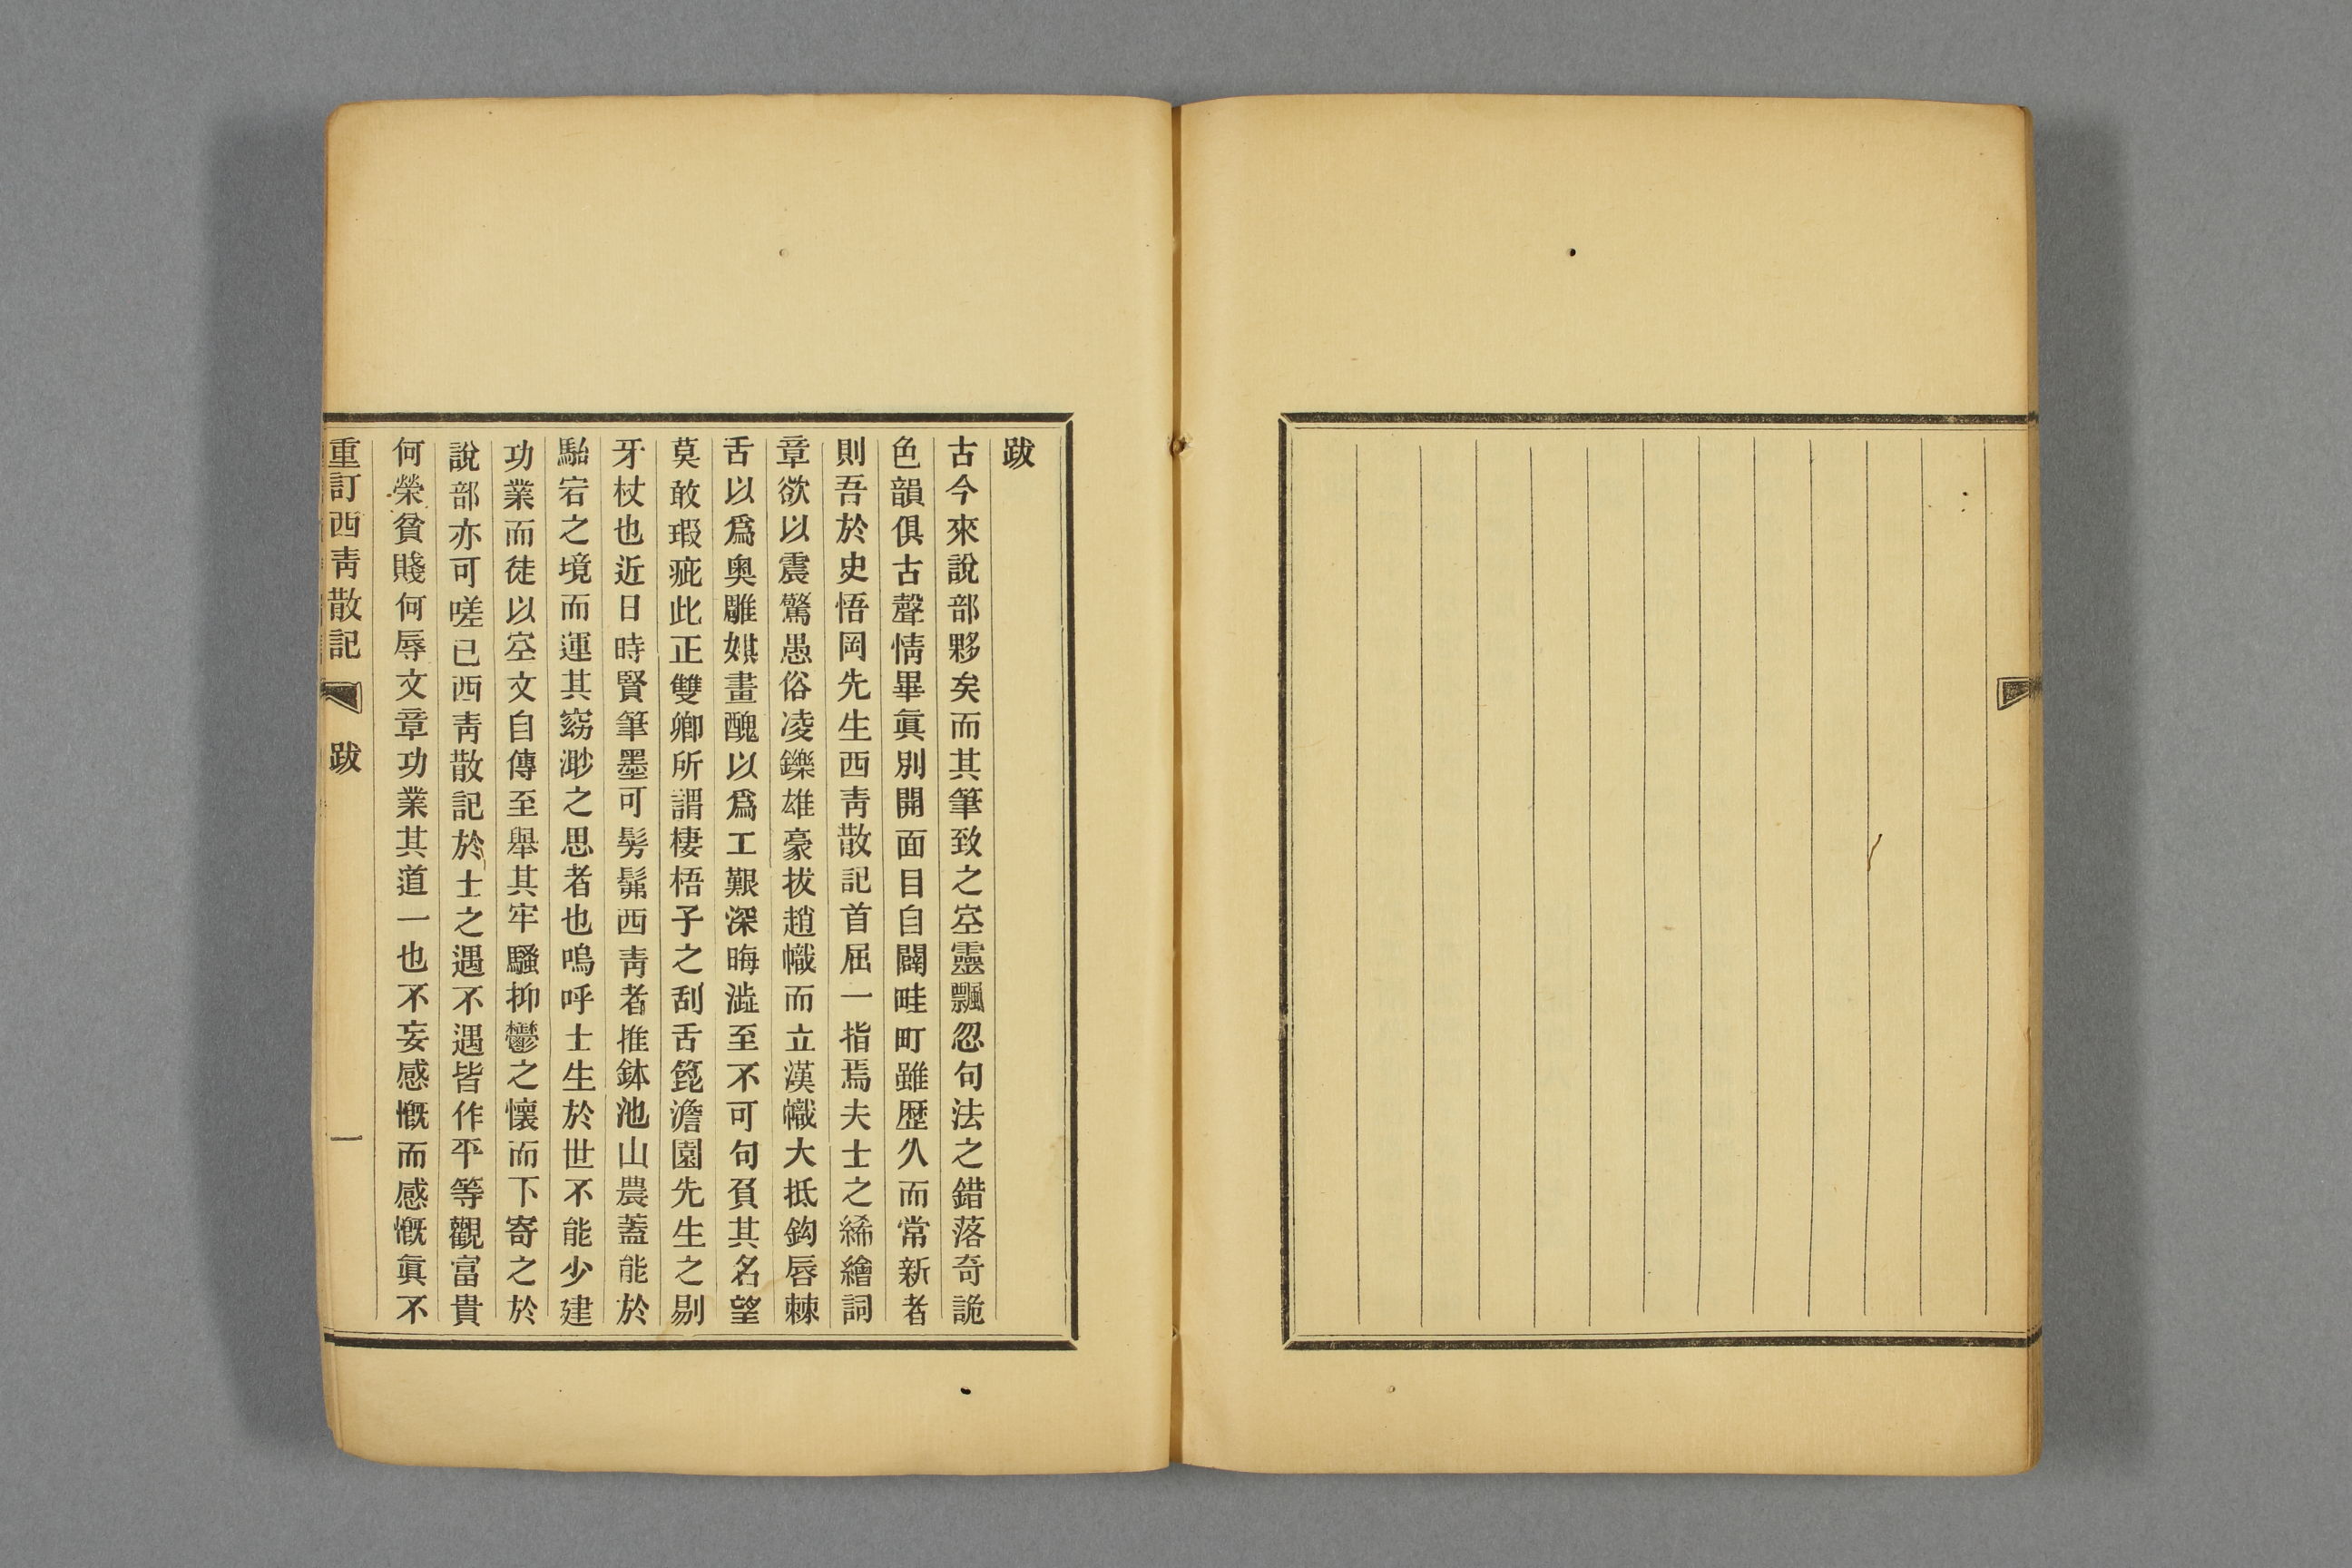 跋
古今來說部夥矣而其筆致之空靈飄忽句法之錯落奇詭
色韻俱古聲情畢眞別開面目自闢畦町雖歷久而常新者
則吾於史悟岡先生西靑散記首屈一指焉夫士之絺繪詞
章欲以震驚愚俗凌鑠雄豪拔趙幟而立漢幟大抵鈎唇棘
舌以爲奧雕娸畫醜以爲工艱深晦澁至不可句頁其名望
莫敢瑕疵此正雙卿所謂棲梧子之刮舌篦澹園先生之剔
牙杖也近日時賢筆墨可髣髴西靑者推鉢池山農蓋能於
駘宕之境而運其窈渺之思者也嗚呼士生於世不能少建
功業而徒以空文自傳至舉其牢騷抑鬱之懷而下寄之於
說部亦可嗟已西靑散記於士之遇不遇皆作平等觀富貴
何榮貧賤何辱文章功業其道一也不妄感慨而感慨眞不
重訂西靑散記 跋 一